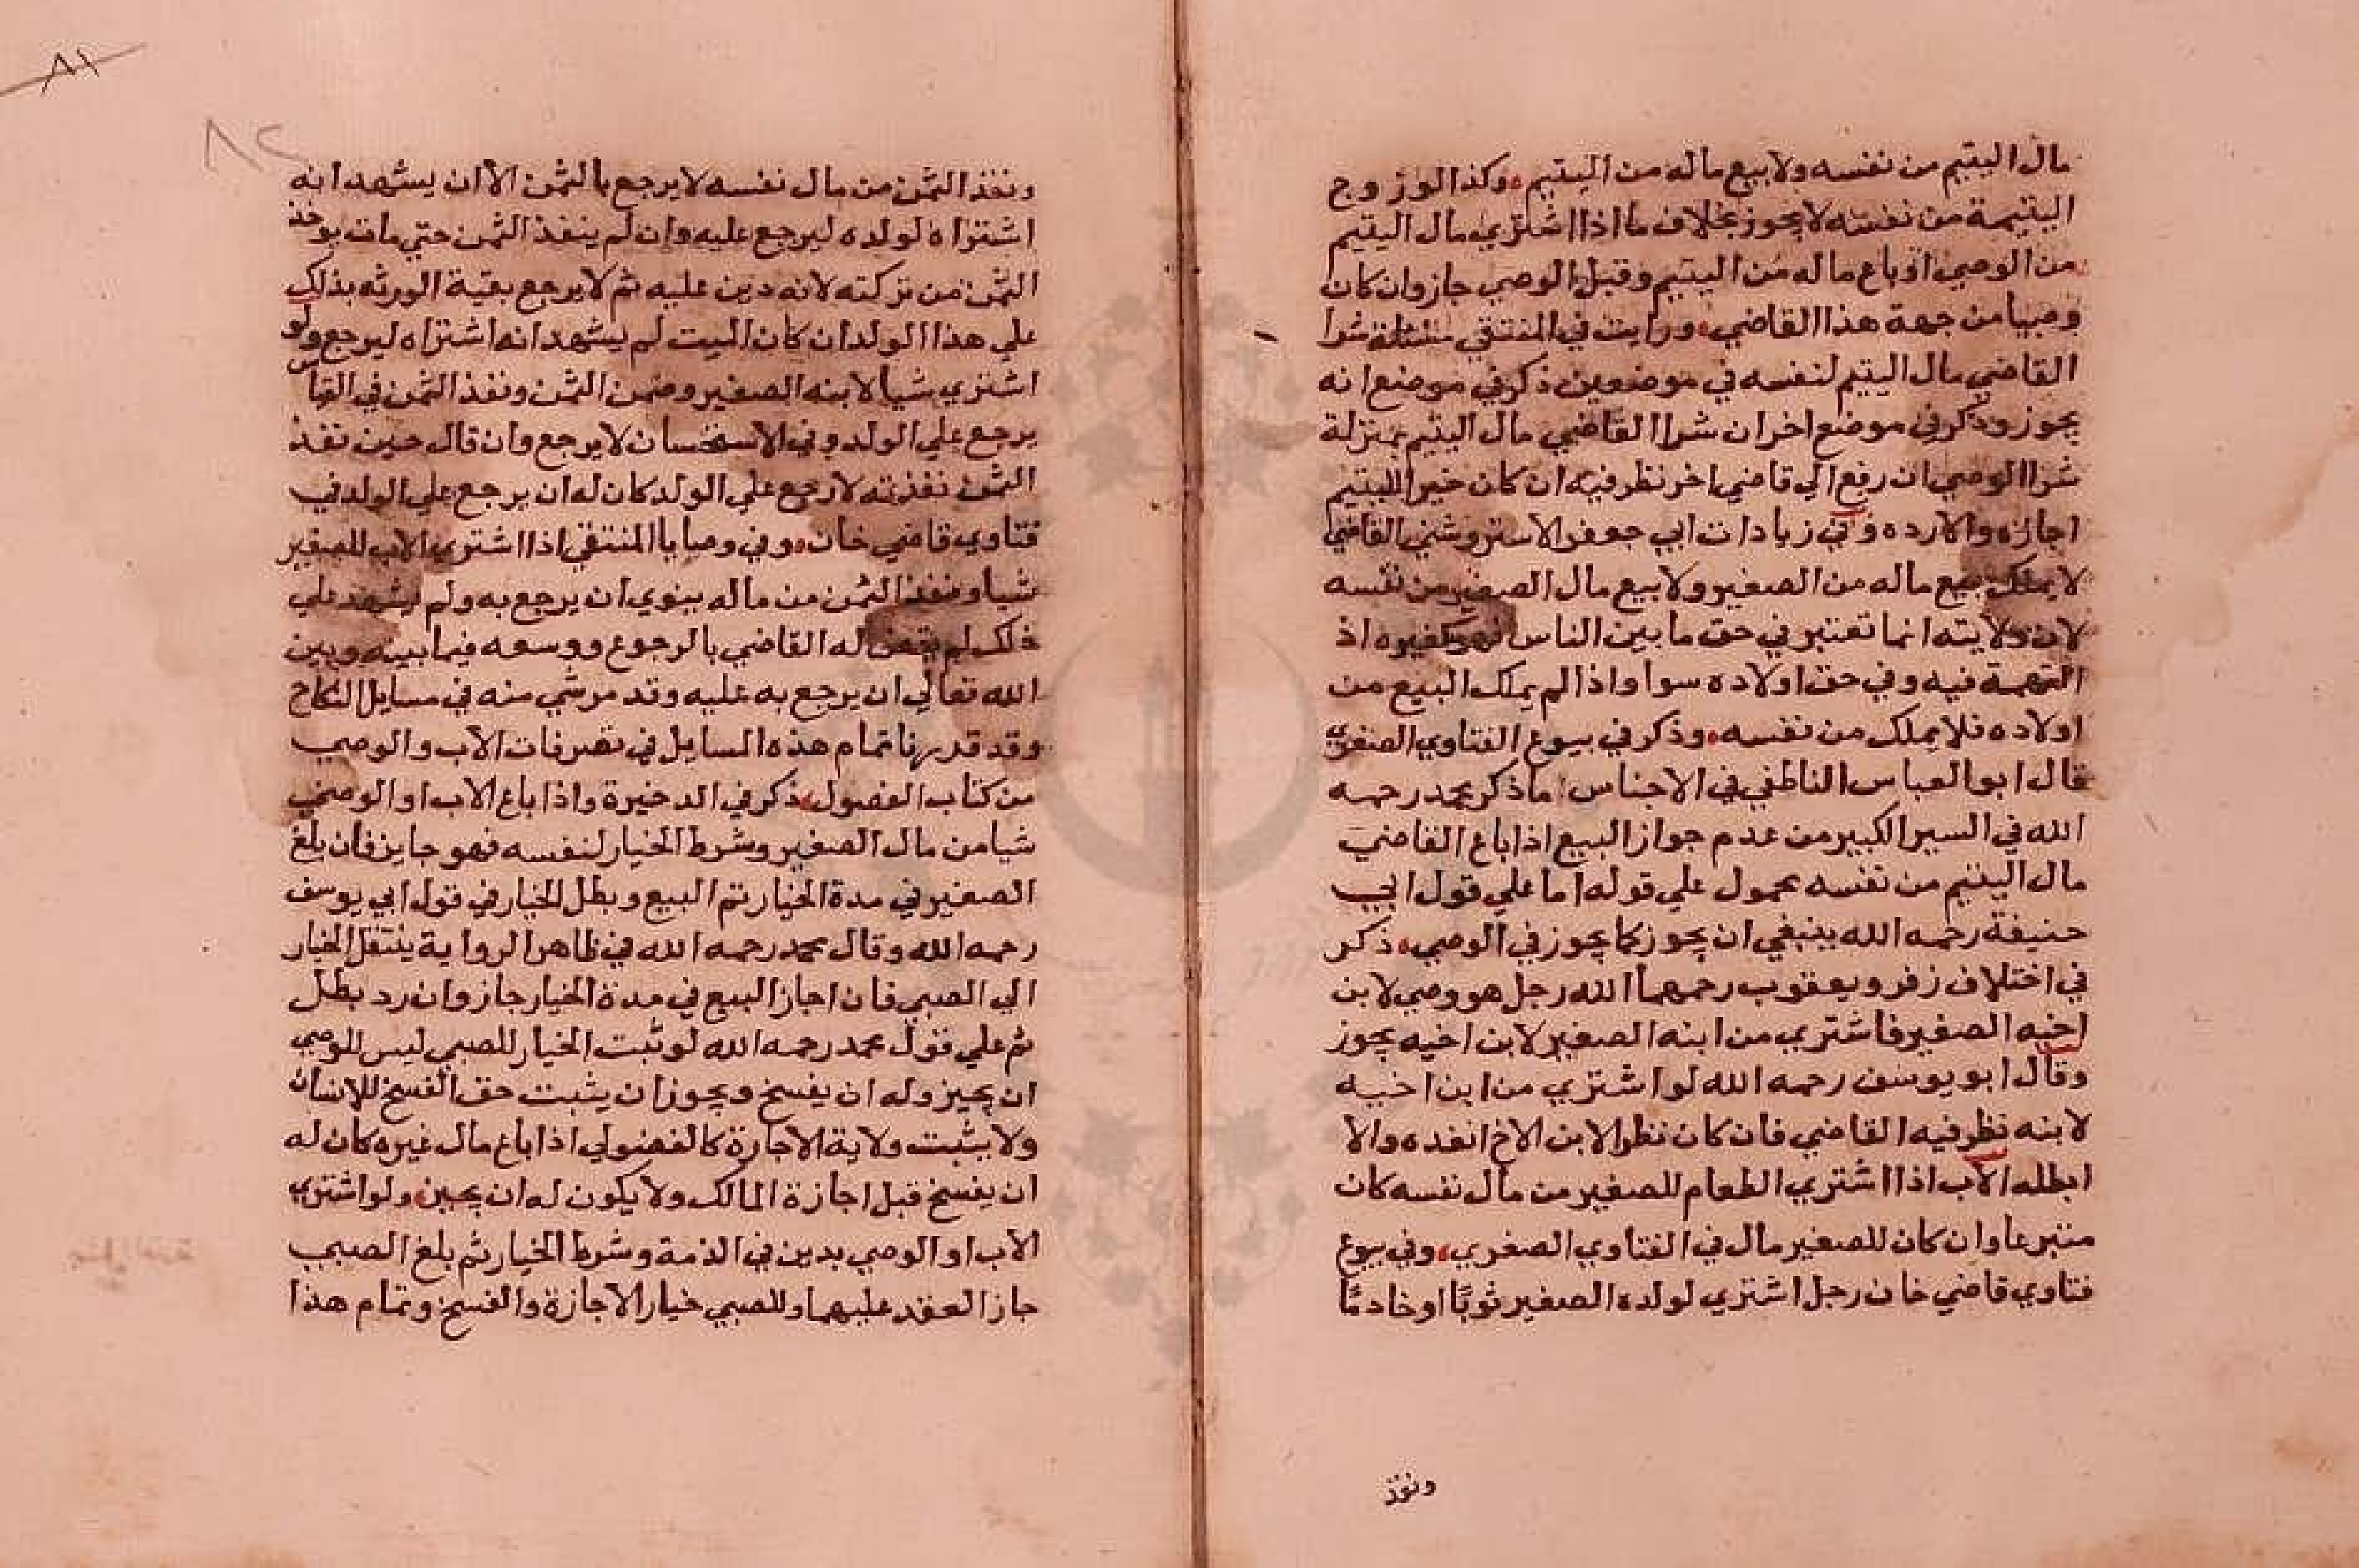 مال اليتيم من نفسه ولا بيع ماله من اليتيم وكذا لو زوج
اليتيمة من نفسه لا يجوز بخلاف ما اذا اشتري مال اليتيم
من الوصي او باع ماله من اليتيم وقبل الوصي جاز وان كان
وصيا من جهة هذا القاضي ورايت في المنتقي مسئلة شرا
القاضي مال اليتيم لنفسه في موضعين ذكر في موضع انه
يجوز وذكر في موضع اخر ان شرا القاضي مال اليتيم بمنزلة
شرا الوصي ان رفع الي قاضي اخر نظر فيه ان كان خيرا لليتيم
اجازه والا رده وفي زيادات ابي جعفر الاستروشني القاضي
لا يملك بيع ماله من الصغير ولا بيع مال الصغير من نفسه
لان ولايته انما تعتبر في حق ما بين الناس فهو كغيره اذ
التهمة فيه وفي حق اولاده سوا واذا لم يملك البيع من
اولاده فلا يملك من نفسه وذكر في بيوع الفتاوي الصغري
قال ابو العباس الناطفي في الاجناس ما ذكر محمد رحمه
الله في السير الكبير من عدم جواز البيع اذا باع القاضي
مال اليتيم من نفسه محمول علي قوله اما علي قول ابي
حنيفة رحمه الله ينبغي ان يجوز كما يجوز في الوصي ذكر
في اختلاف زفر ويعقوب رحمهما الله رجل هو وصي لابن
اخيه الصغير فاشتري من ابنه الصغير لابن اخيه يجوز
وقال ابو يوسف رحمه الله لو اشتري من ابن اخيه
لابنه نظر فيه القاضي فان كان نظرا لابن الاخ انفده والا
ابطله الاب اذا اشتري الطعام للصغير من مال نفسه كان
متبرعا وان كان للصغير مال في الفتاوي الصغري وفي بيوع
فتاوي قاضي خان رجل اشتري لولده الصغير ثوبًا او خادمًا
ونقذ
٨١
٨٢
ونقذ الثمن من مال نفسه لا يرجع بالثمن الا ان يشهد انه
اشتراه لولده ليرجع عليه وان لم ينقذ الثمن حتي مات يوخذ
الثمن من تركته لانه دين عليه ثم لا يرجع بقية الورثه بذلك
علي هذا الولد ان كان الميت لم يشهد انه اشتراه ليرجع ولو
اشتري شيا لابنه الصغير وضمن الثمن ونقذ الثمن في القياس
يرجع علي الولد وفي الاستحسان لا يرجع وان قال حين نقذ
الثمن نقذته لارجع علي الولد كان له ان يرجع علي الولد في
فتاوي قاضي خان وفي وصايا المنتقي اذا اشتري الاب للصغير
شيا ونقذ الثمن من ماله ينوي ان يرجع به ولم يشهد علي
ذلك لم يقض له القاضي بالرجوع ووسعه فيما بينه وبين
الله تعالي ان يرجع به عليه وقد مر شي منه في مسايل النكاح
وقد قدرنا تمام هذه المسايل في تصرفات الاب والوصي
من كتاب الفصول ذكر في الدخيرة واذا باع الاب او الوصي
شيا من مال الصغير وشرط الخيار لنفسه فهو جايز فان بلغ
الصغير في مدة الخيار تم البيع وبطل الخيار في قول ابي يوسف
رحمه الله وقال محمد رحمه الله في ظاهر الرواية ينتقل الخيار
الي الصبي فان اجاز البيع في مدة الخيار جاز وان رد بطل
ثم علي قول محمد رحمه الله لو ثبت الخيار للصبي ليس للوصي
ان يجيز وله ان يفسخ ويجوز ان يثبت حق الفسخ للانسان
ولا يثبت ولاية الاجازة كالفضولي اذا باع مال غيره كان له
ان يفسخ قبل اجازة المالك ولا يكون له ان يجيز ولو اشتري
الاب او الوصي بدين في الذمة وشرط الخيار ثم بلغ الصبي
جاز العقد عليهما وللصبي خيار الاجازة والفسخ وتمام هذا